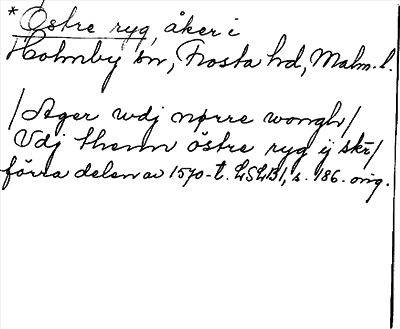 *Östre ryg, åker i
Holmby sn, Frosta hd, Malm. l.
/Ager udj nørre wongh/
Vdj thenn östre ryg ij skr/
förra delen av 1570-t. LSLB1, s. 186. orig.